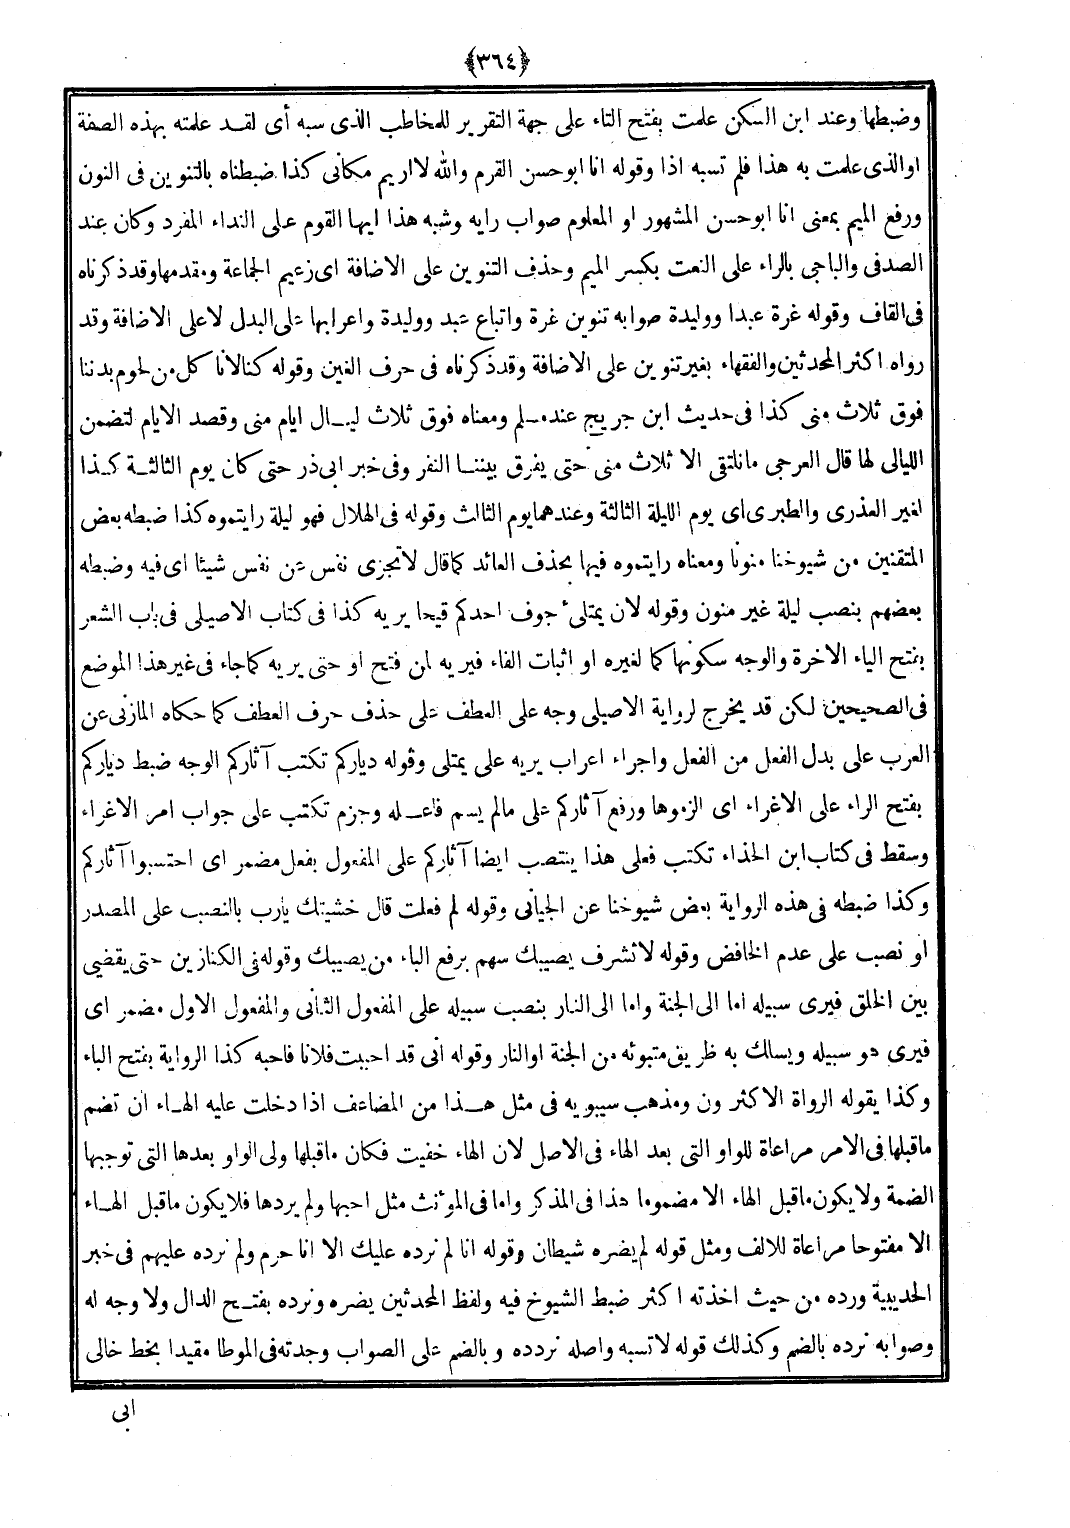 ﴿٣٦٤﴾
وضبطها وعند ابن السكن علمت بفتح التاء على جهة التقرير للمخاطب الذى سبه أى لقد علمته بهذه الصفة
اوالذى علمت به هذا فلم تسبه اذا وقوله انا ابوحسن القرم والله لااريم مكانى كذا ضبطناه بالتنوين فى النون
ورفع الميم بمعنى انا ابوحسن المشهور او المعلوم صواب رايه وشبه هذا ايها القوم على النداء المفرد وكان عند
الصدفى والباجى بالراء على النعت بكسر الميم وحذف التنوين على الاضافة اى زعيم الجماعة ومقدمها وقد ذكرناه
فى القاف وقوله غرة عبدا ووليدة صوابه تنوين غرة واتباع عبد ووليدة واعرابها على البدل لاعلى الاضافة وقد
رواه اكثر المحدثين والفقهاء بغير تنوين على الاضافة وقد ذكرناه فى حرف الغين وقوله كنا لانا كل من لحوم بدننا
فوق ثلاث منى كذا فى حديث ابن جريج عند مسلم ومعناه فوق ثلاث ليال ايام منى وقصد الايام لتضمن
الليالى لها قال العرجى مانلتقى الا ثلاث منى حتى يفرق بيننا النفر وفى خبر ابى ذر حتى كان يوم الثالثة كذا
لغير العذرى والطبرى اى يوم الليلة الثالثة وعندهما يوم الثالث وقوله فى الهلال فهو ليلة رايتموه كذا ضبطه بعض
المتقنين من شيوخنا منونا ومعناه رايتموه فيها بحذف العائد كما قال لاتجزى نفس عن نفس شيئا اى فيه وضبطه
بعضهم بنصب ليلة غير منون وقوله لان يمتلىء جوف احدكم قيحا يريه كذا فى كتاب الاصيلى فى باب الشعر
بفتح الياء الاخرة والوجه سكونها كما لغيره او اثبات الفاء فيريه لمن فتح او حتى يريه كماجاء فى غير هذا الموضع
فى الصحيحين لكن قد يخرج لرواية الاصيلى وجه على العطف على حذف حرف العطف كما حكاه المازنى عن
العرب على بدل الفعل من الفعل واجراء اعراب يريه على يمتلى وقوله دياركم تكتب آثاركم الوجه ضبط دياركم
بفتح الراء على الاغراء اى الزموها ورفع آثاركم على مالم يسم فاعله وجزم تكتب على جواب امر الاغراء
وسقط فى كتاب ابن الحذاء تكتب فعلى هذا ينتصب ايضا آثاركم على المفعول بفعل مضمر اى احتسبوا آثاركم
وكذا ضبطه فى هذه الرواية بعض شيوخنا عن الجيانى وقوله لم فعلت قال خشيتك يارب بالنصب على المصدر
او نصب على عدم الخافض وقوله لاتشرف يصيبك سهم برفع الباء من يصيبك وقوله فى الكنازين حتى يقضى
بين الخلق فيرى سبيله اما الى الجنة واما الى النار بنصب سبيله على المفعول الثانى والمفعول الاول مضمر اى
فيرى هو سبيله ويسالك به طريق متبوئه من الجنة اوالنار وقوله انى قد احببت فلانا فاحبه كذا الرواية بفتح الباء
وكذا يقوله الرواة الاكثرون ومذهب سيبويه فى مثل هذا من المضاعف اذا دخلت عليه الهاء ان تضم
ماقبلها فى الامر مراعاة للواو التى بعد الهاء فى الاصل لان الهاء خفيت فكان ماقبلها ولى الواو بعدها التى توجبها
الضمة ولايكون ماقبل الهاء الا مضموما هذا فى المذكر واما فى المونث مثل احبها ولم يردها فلايكون ماقبل الهاء
الا مفتوحا مراعاة للالف ومثل قوله لم يضره شيطان وقوله انا لم نرده عليك الا انا حرم ولم نرده عليهم فى خبر
الحديبية ورده من حيث اخذته اكثر ضبط الشيوخ فيه ولفظ المحدثين يضره ونرده بفتح الدال ولا وجه له
وصوابه نرده بالضم وكذلك قوله لاتسبه واصله نردده وبالضم على الصواب وجدته فى الموطا مقيدا بخط خالى
ابى